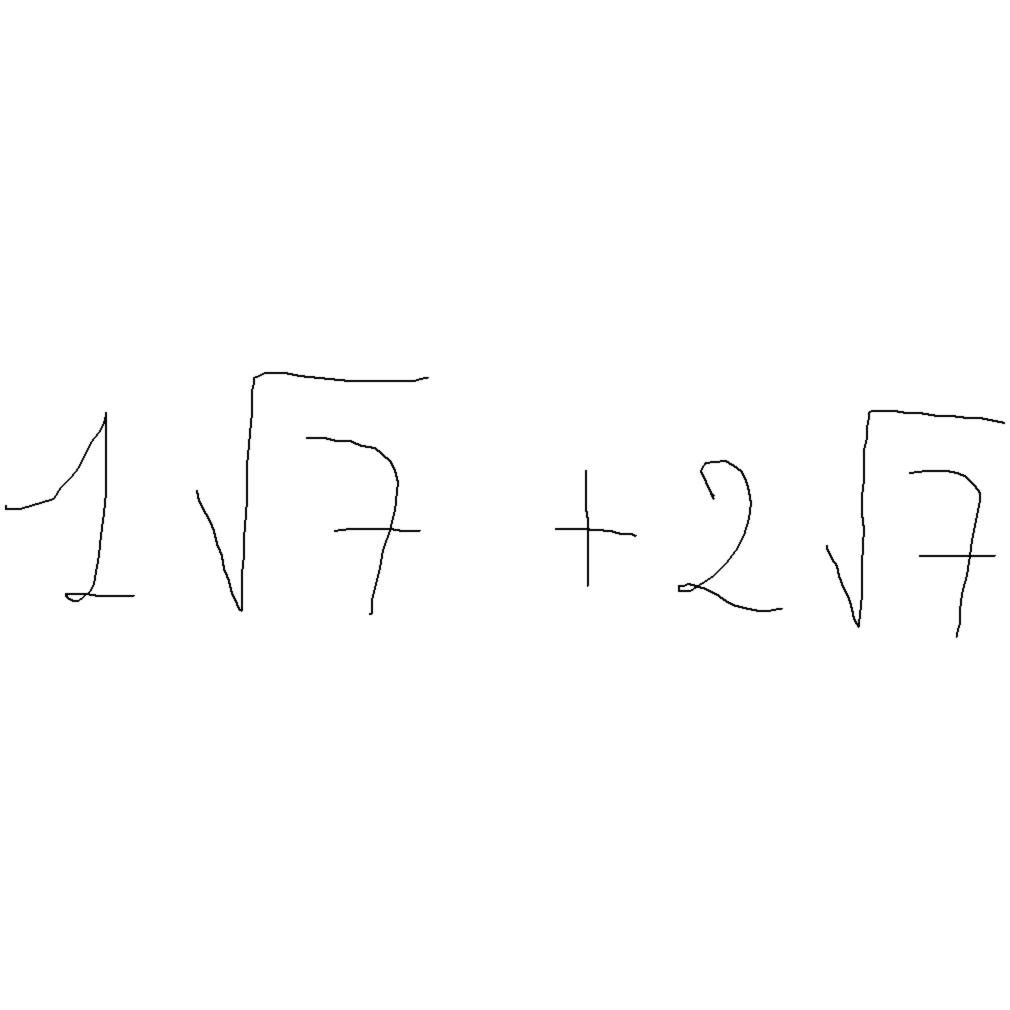 1√7 + 2√7